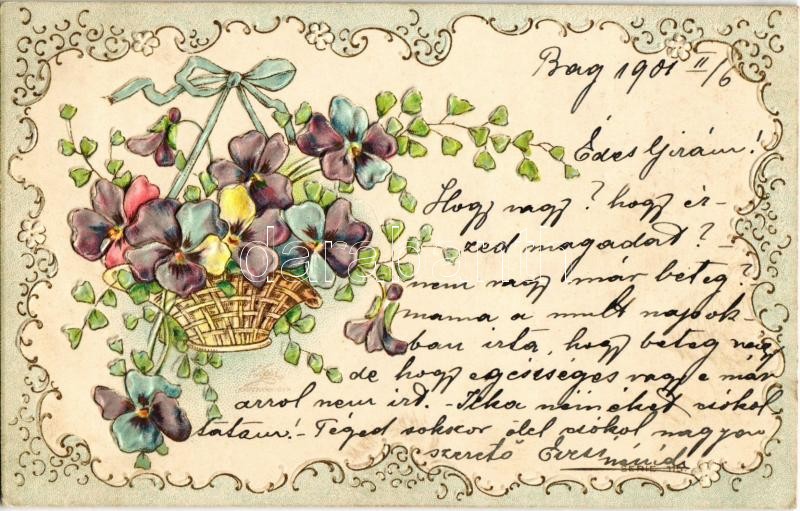 Bag 1901 II/6
Édes Girám!
Hogy vagy? hogy ér-
zed magadat? -
nem vagy már beteg?
mama a mult napok-
ban írta, hogy beteg vagy
de hogy egésséges vagy e már
arrol nem írt. - Ilka nénéket csókol
tatam! - Téged sokszor ölel csókol nagyon
szerető
darabanth
SERIE